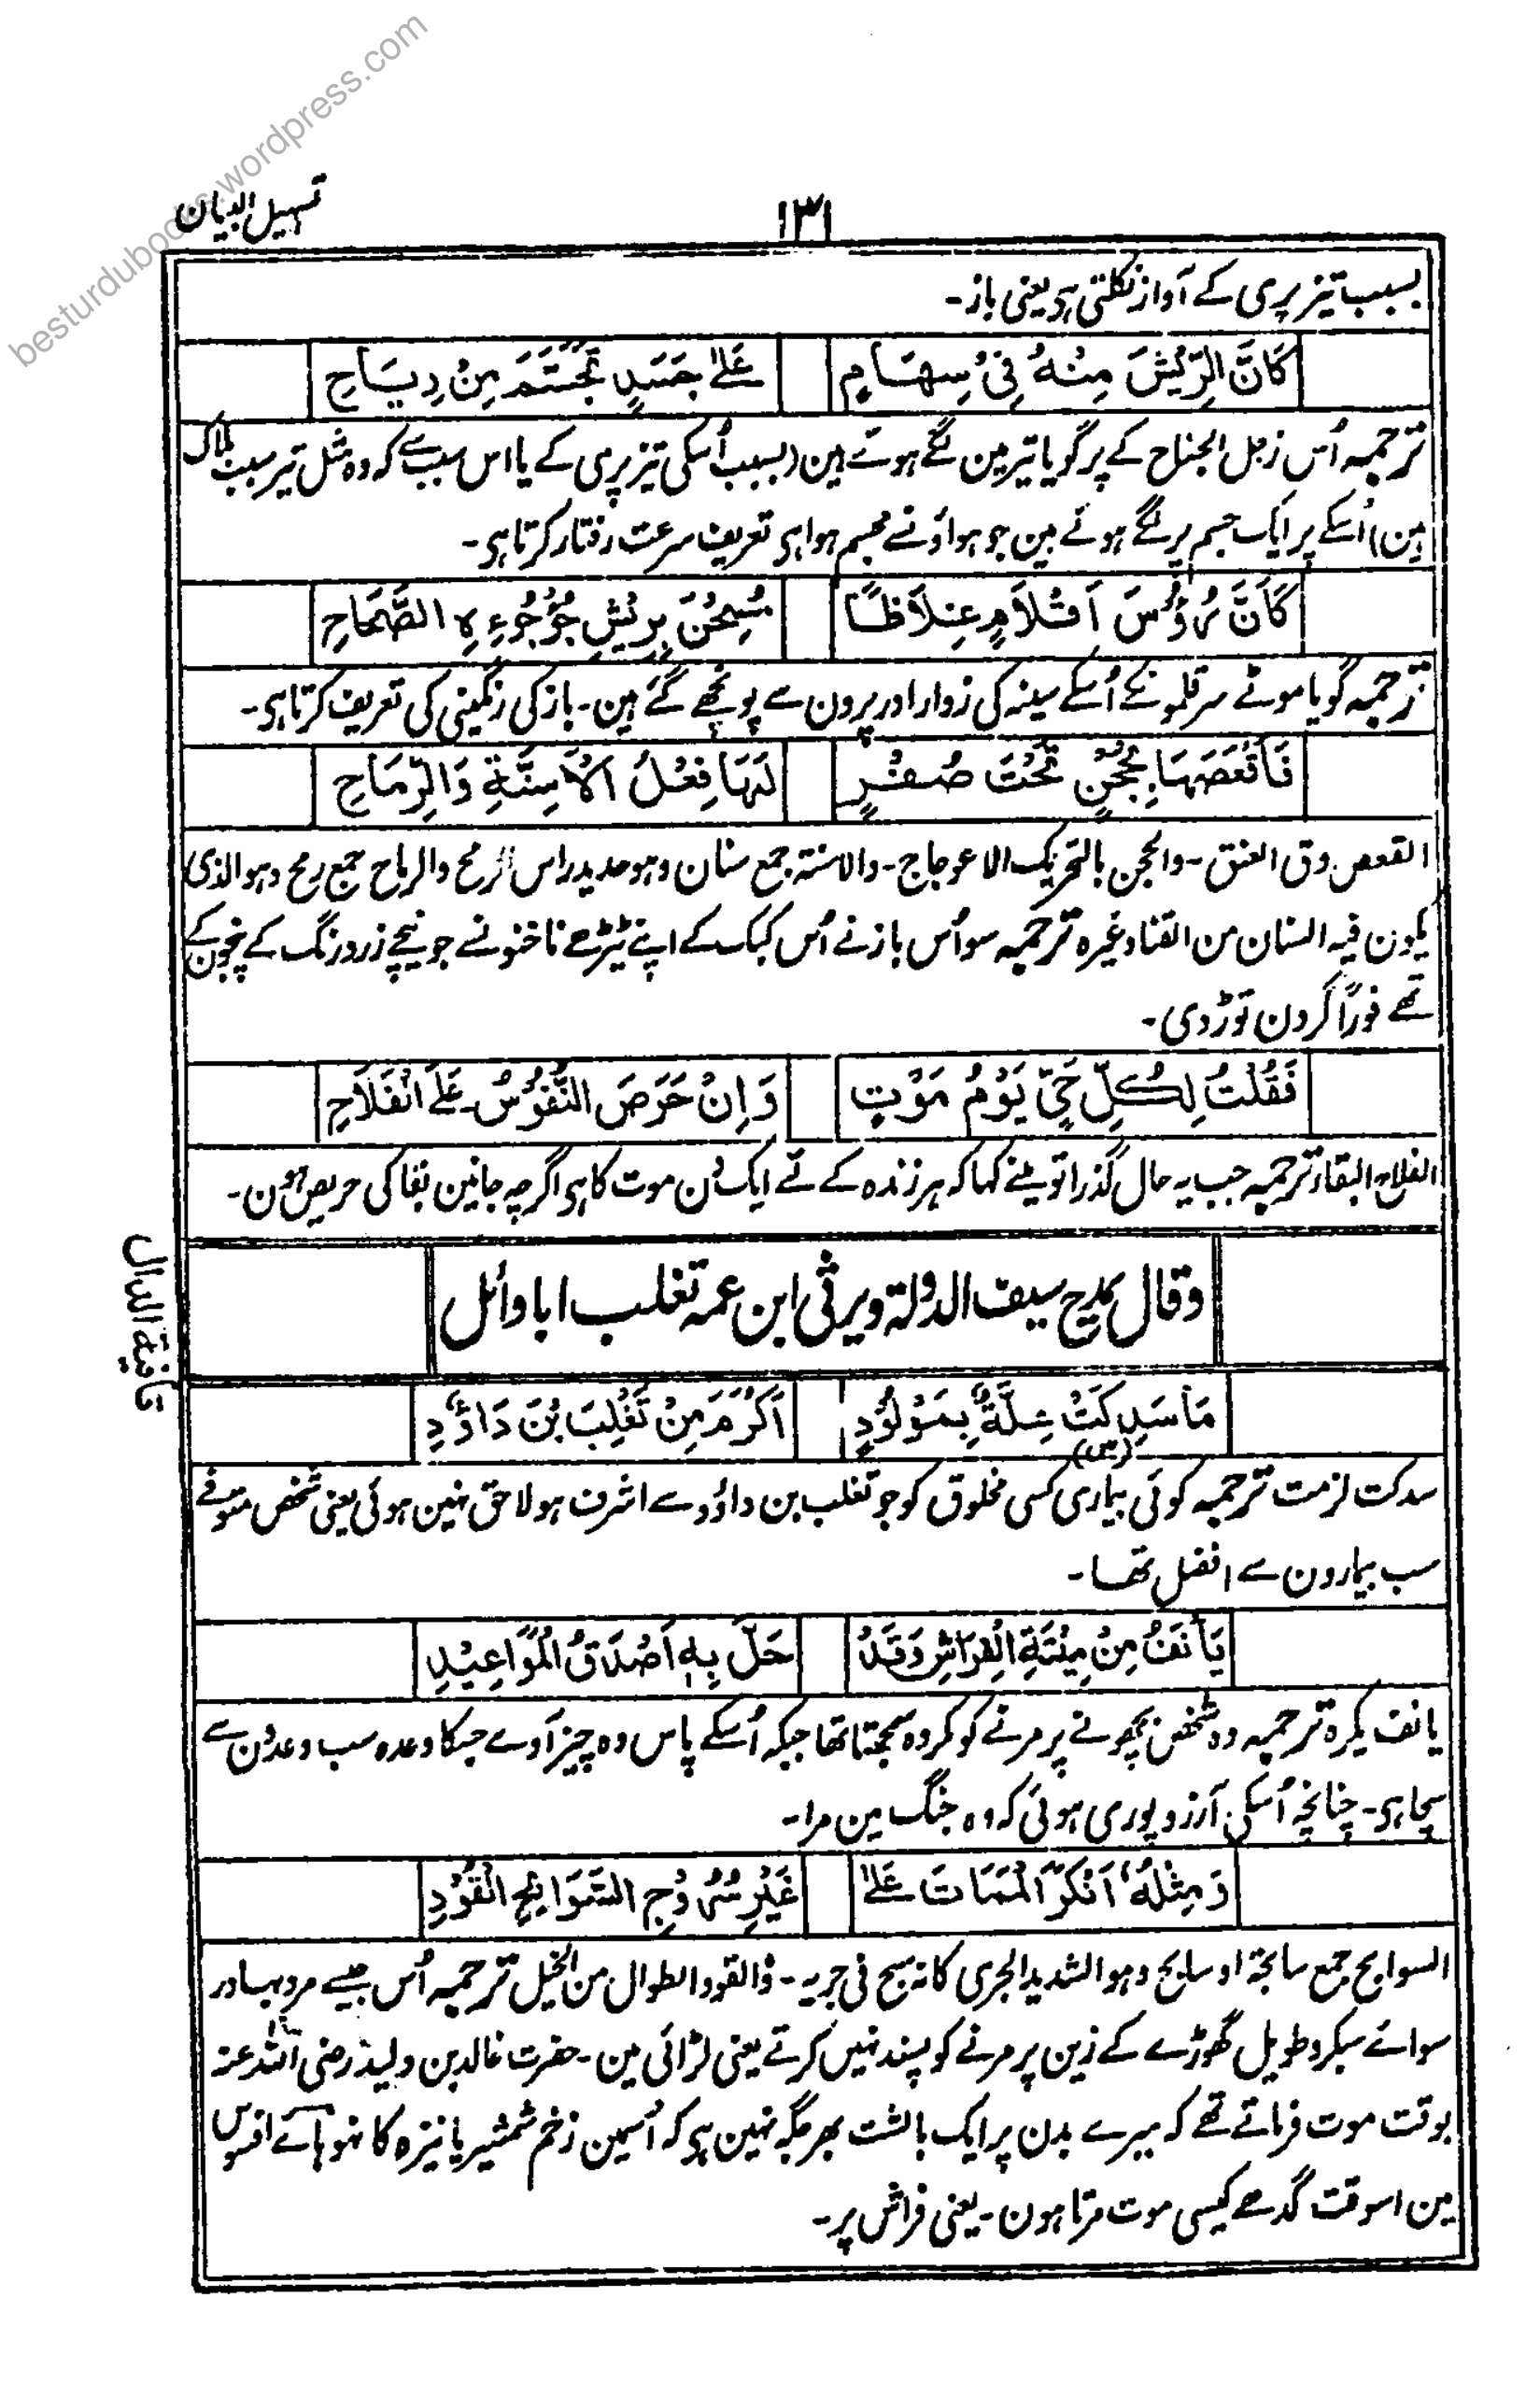 besturdubooks.wordpress.com
تسہیل البیان
۱۳۱
بسبب تیز پری کے آواز نکلتی ہی یعنی باز۔
كَاَنَّ الرِّيْشَ مِنْهُ فِيْ سِهَامٍ عَلٰى جَسَدٍ تَجَسَّمَ مِنْ رِيَاحِ
ترجمہ اُس زجل الجناح کے پر گویا تیر مین لگے ہوئے ہین (بسبب اُسکی تیز پری کے یا اس سببسے کہ وہ مثل تیر سبب ہلاک
ہین) اُسکے پر ایک جسم پر لگے ہوئے ہین جو ہواؤنسے مجسم ہوا ہی تعریف سرعت رفتار کرتا ہی۔
كَاَنَّ رُؤُسَ اَقْلَامٍ غِلَاظًا مُسِحْنَ بِرِيْشِ جُؤْجُوءِهِ الصَّحَاحِ
ترجمہ گویا موٹے سر قلمونکے اُسکے سینہ کی زوار اور پرون سے پونچھے گئے ہین۔ باز کی رنگینی کی تعریف کرتا ہی۔
فَاَقْعَصَهَا بِحُجْنٍ تَحْتَ صُفْرٍ لَهَا فِعْلُ الْاَسِنَّةِ وَالرِّمَاحِ
القعص دق العنق۔ والحجن بالتحریک الاعوجاج۔ والاسنتہ جمع سنان وہو حدید راس الرمح والرماح جمع رمح وہو الذی
یکون فیہ السنان من القنا وغیرہ ترجمہ سو اُس باز نے اُس کبک کے اپنے ٹیڑھے ناخنونسے جو نیچے زرد رنگ کے پنجون کے
تھے فوراً گردن توڑ دی۔
فَقُلْتُ لِكُلِّ حَيٍّ يَوْمُ مَوْتٍ وَاِنْ حَرَصَ النُّفُوْسُ عَلَى الْفَلَاحِ
الفلاح البقاء ترجمہ جب یہ حال گذرا تو مینے کہا کہ ہر زندہ کے لئے ایک دن موت کا ہی اگرچہ جانین بقا کی حریص ہون۔
قافیۃ الدال
وقال یمدح سیف الدولۃ ویرثی ابن عمہ تغلب ابا وائل
مَا سَدِكَتْ عِلَّةٌ بِمَوْلُوْدٍ اَكْرَمَ مِنْ تَغْلِبَ بْنَ دَاوٗدِ
سدکت لزمت ترجمہ کوئی بیماری کسی مخلوق کو جو تغلب بن داؤد سے اشرف ہو لاحق نہین ہوئی یعنی شخص متوفے
سب بیمارون سے افضل تھا۔
يَاْنَفُ مِنْ مِيْتَةِ الْفِرَاشِ وَقَدْ حَلَّ بِهٖ اَصْدَقُ الْمَوَاعِيْدِ
یانف یکرہ ترجمہ وہ شخص بچھونے پر مرنے کو مکروہ سمجھتا تھا جبکہ اُسکے پاس وہ چیز آوے جسکا وعدہ سب وعدون سے
سچا ہی۔ چنانچہ اُسکی آرزو پوری ہوئی کہ وہ جنگ مین مرا۔
وَمِثْلُهٗ اَنْكَرَ الْمَمَاتَ عَلٰى غَيْرِ سُرُوْجِ السَّوَابِحِ الْقُوْدِ
السوابح جمع سابحۃ او سابح وہو الشدید الجری کانہ یسبح فی جریہ۔ والقود الطوال من الخیل ترجمہ اُس جیسے مرد بہادر
سوائے سبکرو طویل گھوڑے کے زین پر مرنے کو پسند نہیں کرتے یعنی لڑائی مین۔ حضرت خالد بن ولید رضی اللہ عنہ
بوقت موت فرماتے تھے کہ میرے بدن پر ایک بالشت بھر جگہ نہین ہی کہ اُسمین زخم شمشیر یا نیزہ کا نہو ہائے افسوس
مین اسوقت گدھے کیسی موت مرتا ہون۔ یعنی فراش پر۔